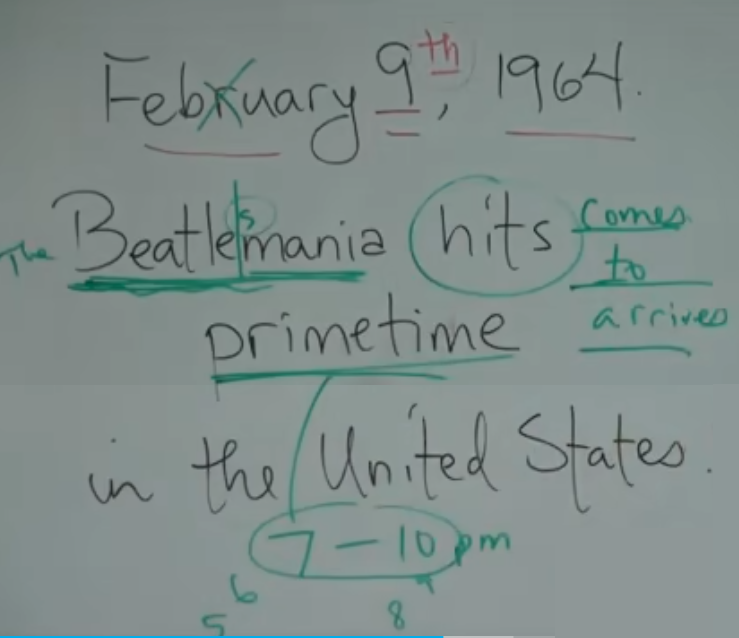 February 9th, 1964.
The Beatlesmania hits comes
to
primetime arrives
in the United States.
7 - 10 pm
6 9
5 8